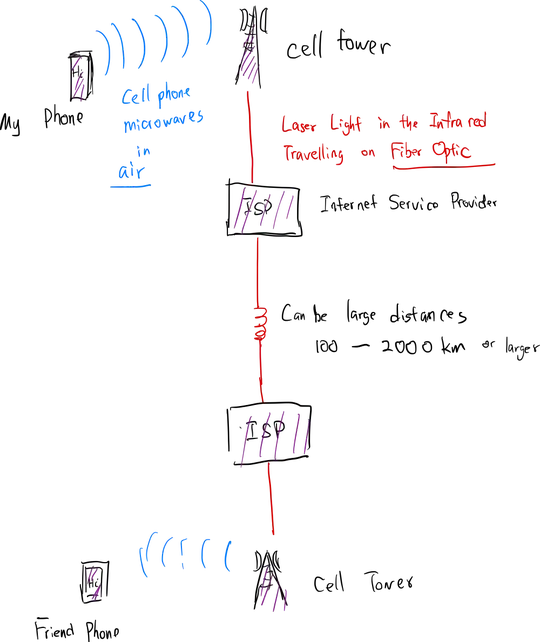 cell tower
Hi
My Phone
Cell phone
microwaves
in
air
Laser Light in the Infrared
Travelling on Fiber Optic
ISP
Internet Servico Provider
Can be large distances
100 — 2000 km or larger
ISP
Hi
Cell Tower
Friend Phone